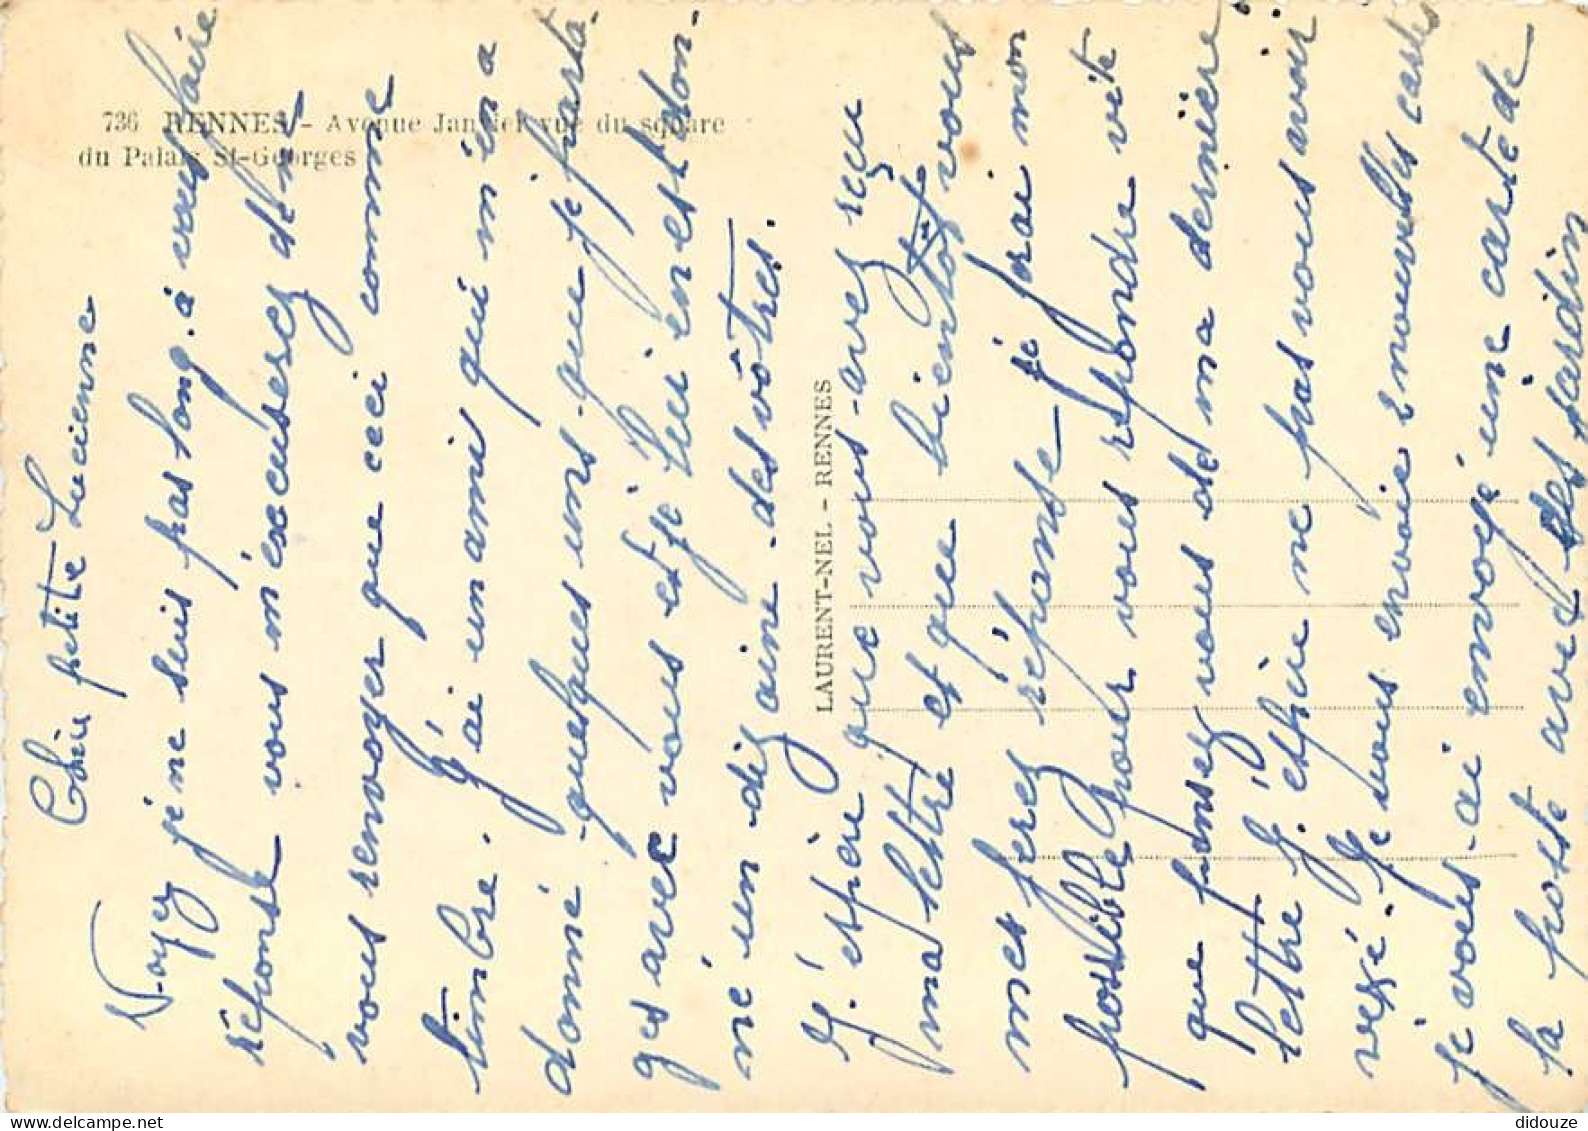 736 RENNES - Avenue Janvier vue du square
du Palais St-Georges
LAURENT-NEL - RENNES
Chère petite Lucienne
Voyez je ne suis pas long. à vous faire
réponse vous m'excuserez de ne
vous renvoyer que ceci comme
timbre. J'ai un ami qui m'en a
donné quelques uns. que je parta-
ges avec vous et je lui en est don-
né un dizaine. des vôtres.
J'espère que vous avez reçu
ma lettre et que bientôt vous
me ferez réponse je ferai mon
possible pour vous répondre vite
que pensez vous de ma dernière
lettre J'espère ne pas vous avoir
vexé. Je vous envoie 2 nouvelles cartes
je vous ai envoyé une carte de
la poste avec les jardin
didouze